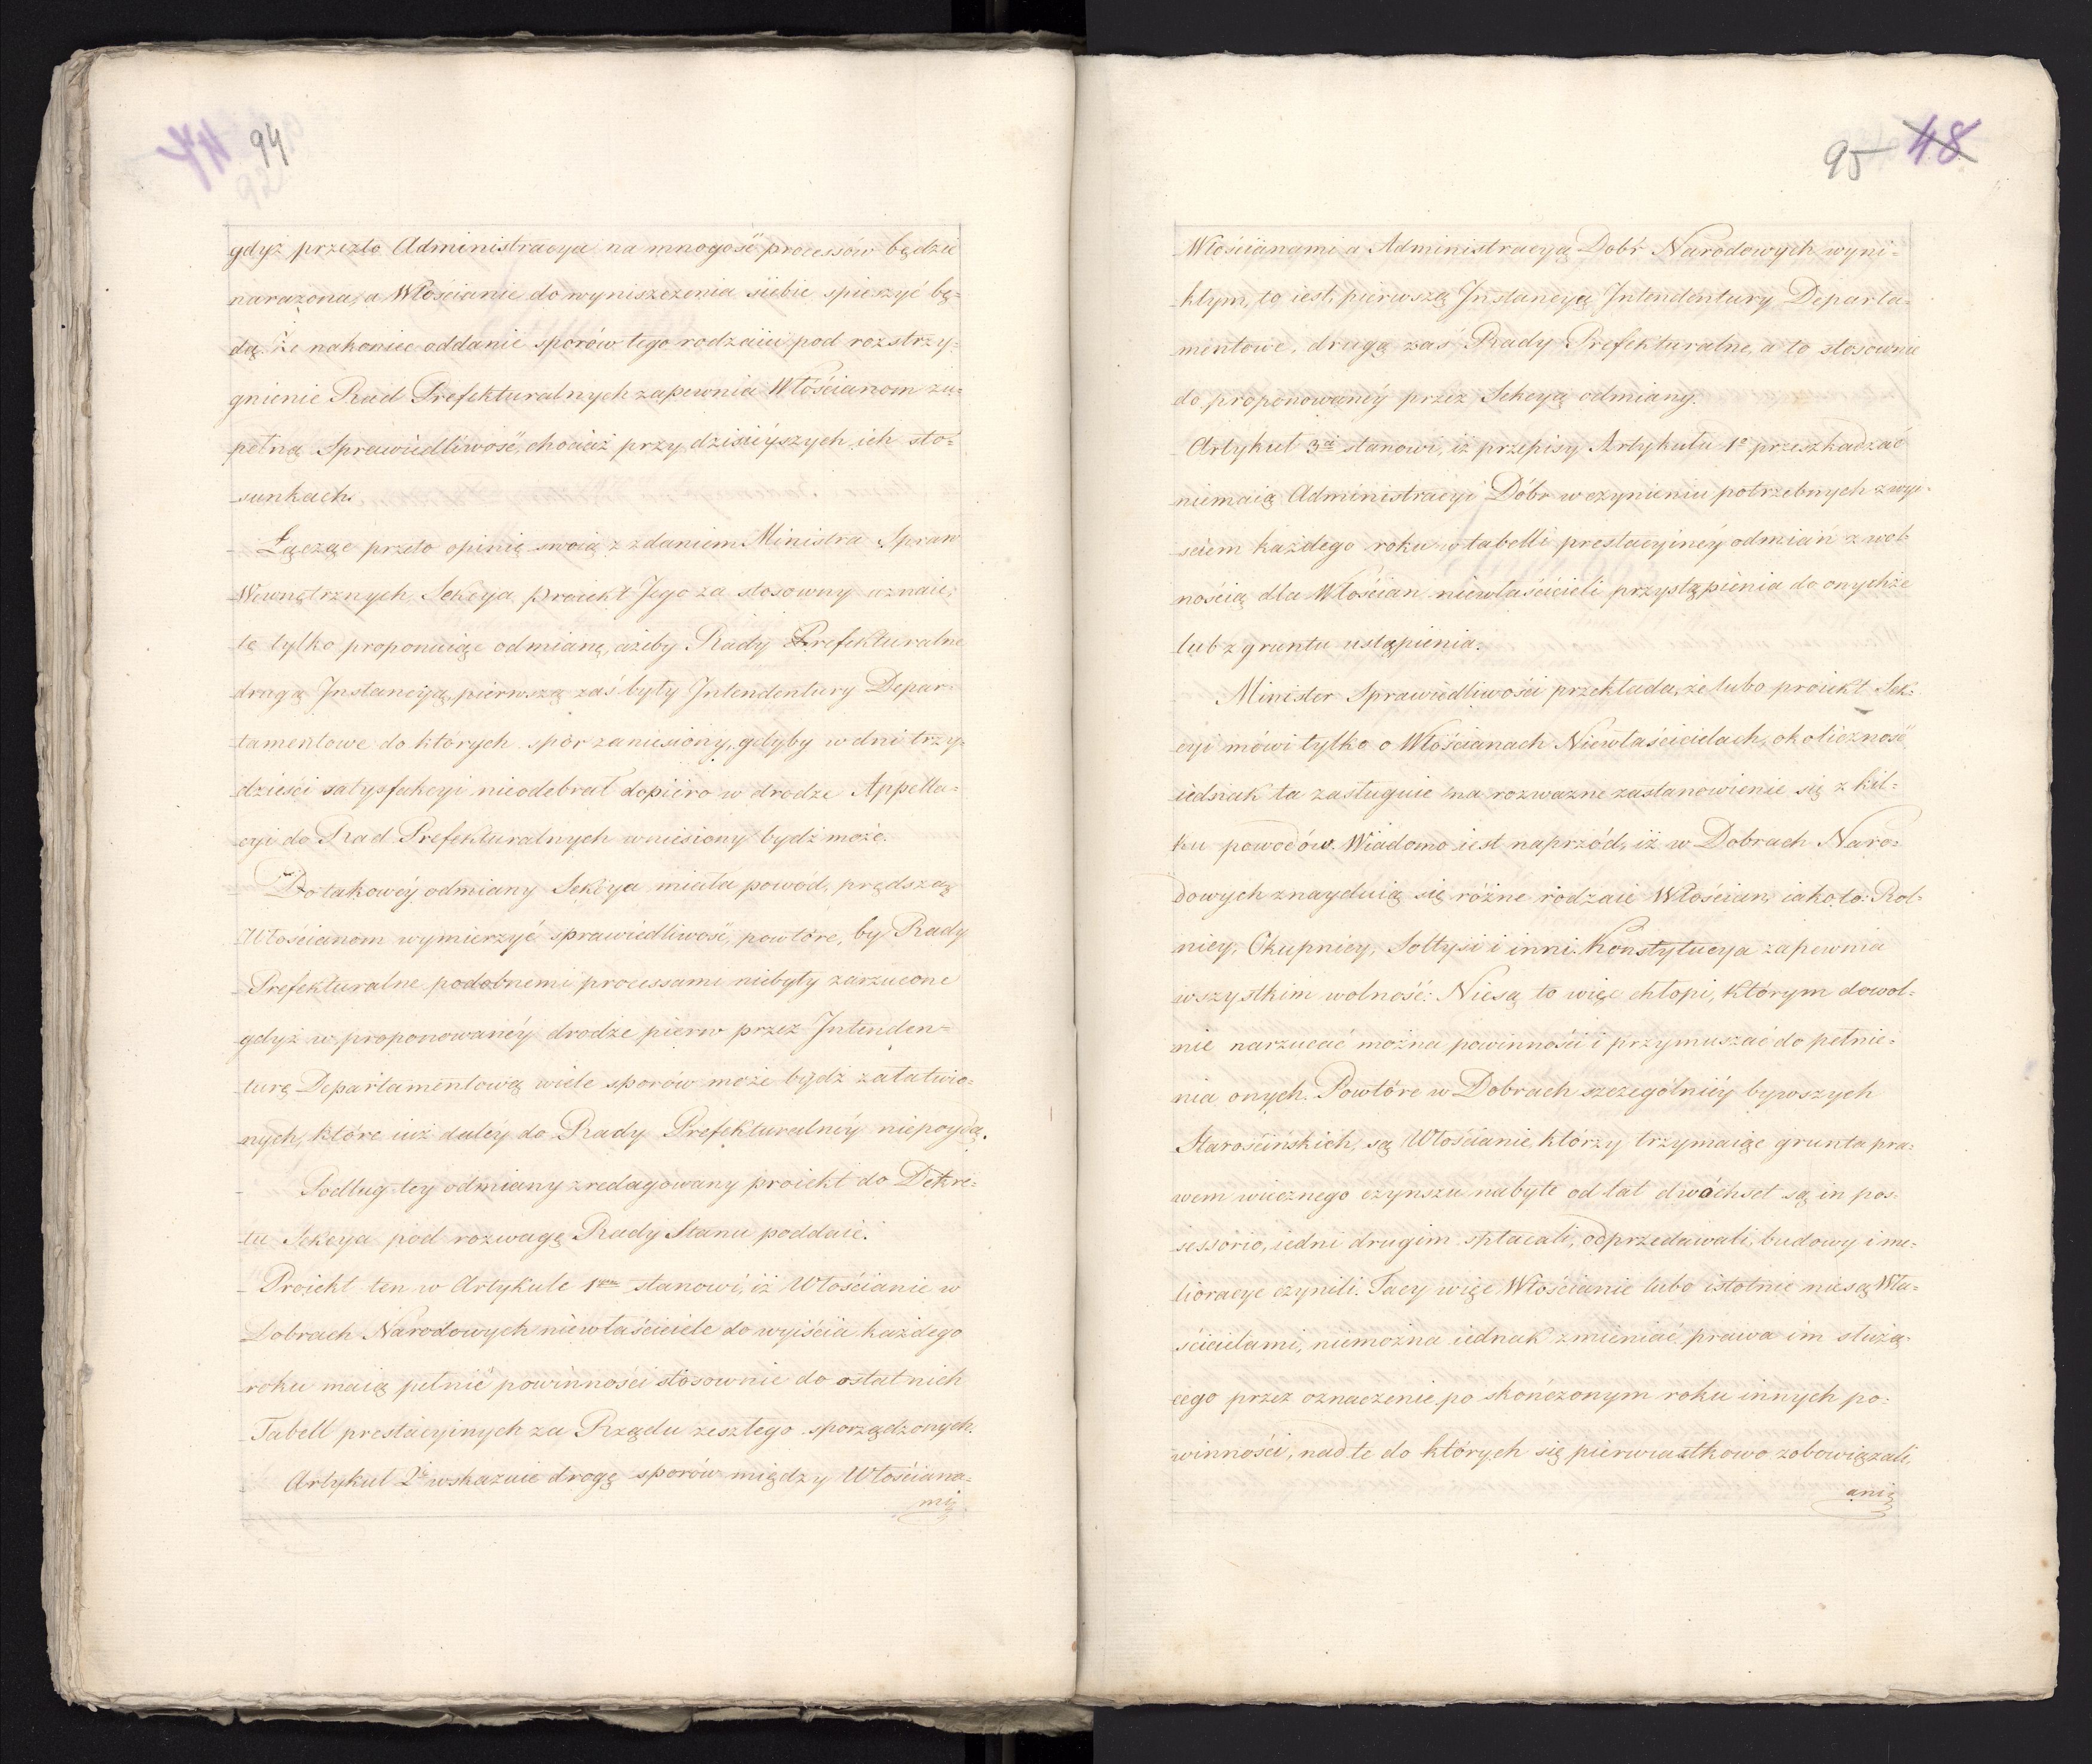 94
92
gdyż przezto Administracya na mnogość processów będzie
narażona, a Włościanie do wyniszczenia siebie spieszyć bę=
dą. Że nakoniec oddanie sporów tego rodzaiu pod rozstrzy=
gnienie Rad Prefekturalnych zapewnia Włościanom zu=
pełną Sprawiedliwość, chociaż przy dzisieyszych ich sto=
sunkach.
Łącząc przeto opinię swoią z zdaniem Ministra Spraw
Wewnętrznych, Sekcya proiekt Jego za stosowny uznaie,
tę tylko proponuiąc odmianę, ażeby Rady Prefekturalne
drugą Instancyą, pierwszą zaś były Intendentury Depar=
tamentowe do których spór zaniesiony, gdyby w dni trzy=
dzieści satysfakcyi nieodebrał dopiero w drodze Appella=
cyi do Rad Prefekturalnych wniesiony bydź może.
Do takowéy odmiany Sekcya miała powód, prędszą
Włościanom wymierzyć sprawiedliwość, powtóre, by Rady
Prefekturalne podobnemi processami niebyły zarzucone
gdyż w proponowanéy drodze pierw przez Intenden=
turę Departamentową wiele sporów może bydź załatwio=
nych, które iuż daley do Rady Prefekturalnéy niepoydą.
Podług tey odmiany zredagowany proiekt do Dekre=
tu Sekcya pod rozwagę Rady Stanu poddaie.
Proiekt ten w Artykule 1wm stanowi, iż Włościanie w
Dobrach Narodowych niewłaściciele do wyiścia każdego
roku maią pełnić powinności stosownie do ostatnich
Tabell prestacyinych za Rządu zeszłego sporządzonych.
Artykuł 2i wskazuie drogę sporów między Włościana=
mi
95 48
Włościanami a Administracyą Dobr Narodowych wyni=
kłym, to iest, pierwszą Instancyą Intendentury Departa=
mentowe, drugą zaś Rady Prefekturalne, a to stosownie
do proponowanéy przez Sekcyą odmiany.
Artykuł 3ci stanowi, iż przepisy Artykułu 1o przeszkadzać
niemaią Administracyi Dóbr w czynieniu potrzebnych z wyi=
sciem każdego roku w tabelli prestacyinéy odmian z wol=
nością dla Włościan niewłaścicieli przystąpienia do onychże
lub z gruntu ustąpienia.
Minister Sprawiedliwości przekłada, że lubo proiekt Sek=
cyi mówi tylko o Włościanach Niewłaścicielach, okoliczność
iednak ta zasługuie na rozważne zastanowienie się z kil=
ku powodów. Wiadomo iest naprzód, iż w Dobrach Naro=
dowych znayduią się różne rodzaie Włościan, iako to: Rol=
nicy, Okupnicy, Sołtysi i inni. Konstytucya zapewnia
wszystkim wolność: Niesą to więc chłopi, którym dowol=
nie narzucać można powinności i przymuszać do pełnie=
nia onych. Powtóre w Dobrach szczególniéy bywszych
Starościńskich, są Włościanie którzy trzymaiąc grunta pra=
wem wiecznego czynszu nabyte od lat dwóchset są in pos=
sessorio, iedni drugim spłacali, odprzedawali, budowy i me=
lioracye czynili. Tacy więc Włościanie lubo istotnie niesą Wła=
ścicielami, niemożna iednak zmieniać prawa im służą=
cego przez oznaczenie po skończonym roku innych po=
winności, nad te do których się pierwiastkowo zobowiązali,
ani